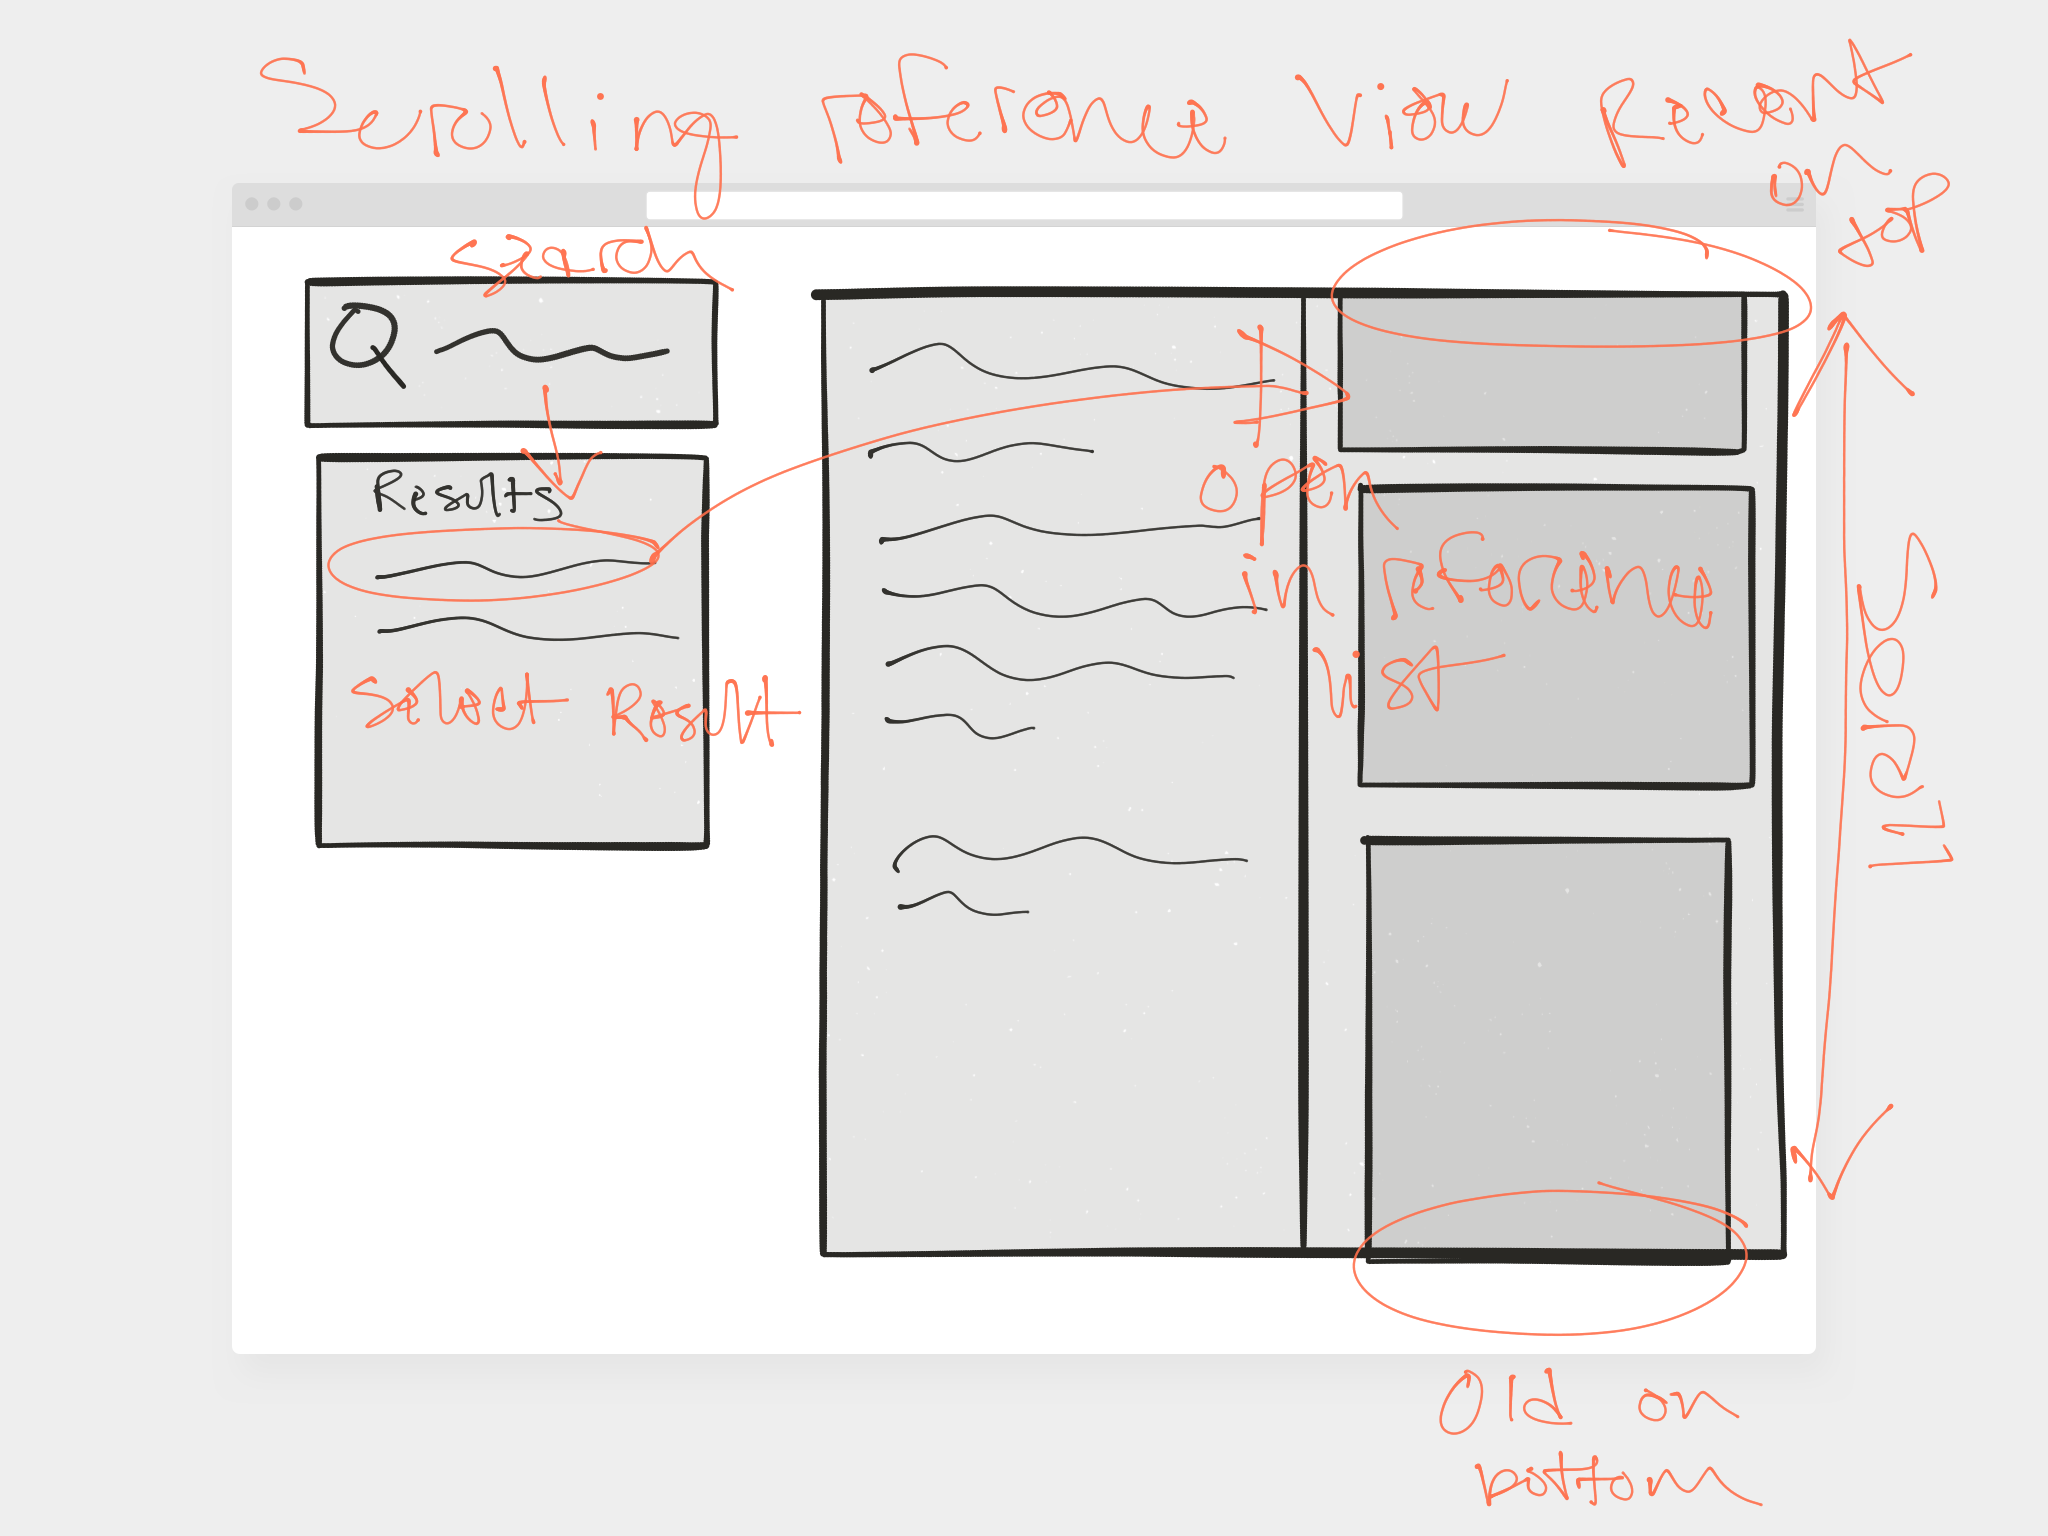 Scrolling reference View
Recent
on
top
search
Results
Select Result
open
in reference
list
Scroll
Old on
bottom